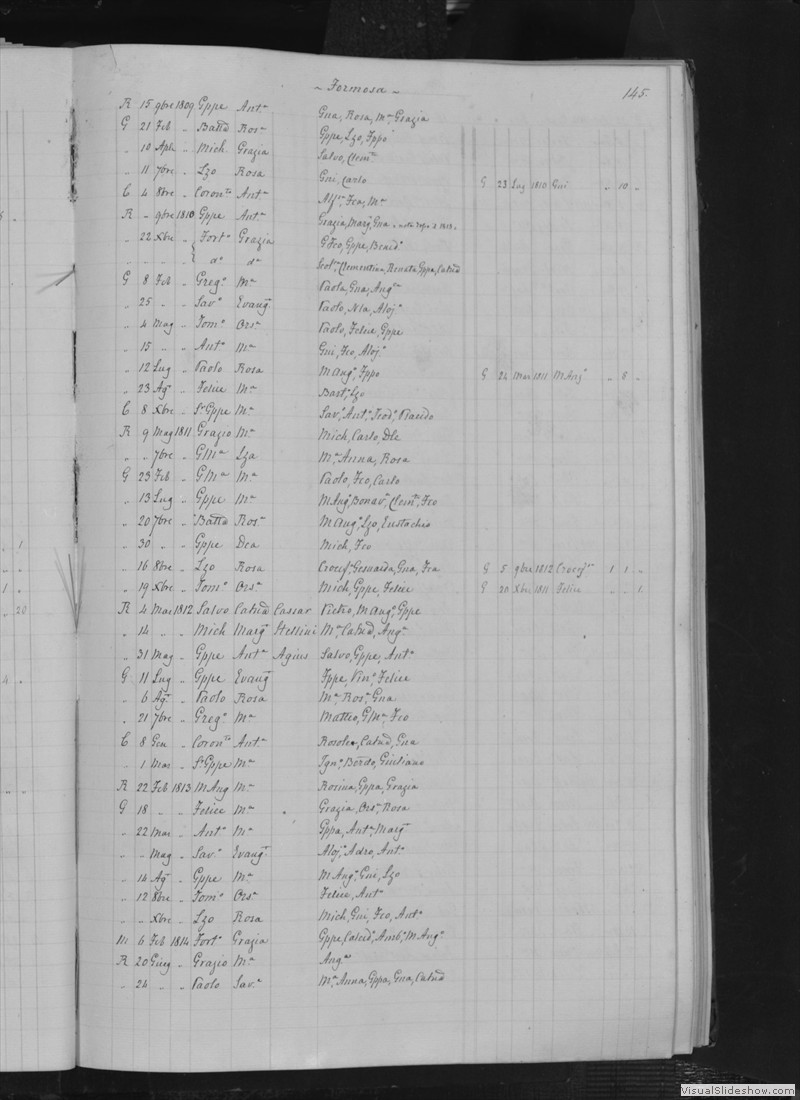 ~ Formosa ~ 145.
R 15 9bre 1809 Gppe Ant.a Gna, Rosa, M.a Grazia
G 21 Feb " Batta Ros.a Gppe, Lzo, Fppo
" 10 Aple " Mich Grazia Salvo, Clem.te
" 11 7bre " Lzo Rosa Gui, Carlo G 23 Lug 1810 Gui " 10 "
C 4 8bre " Coron.to Ant.a Alf.so, Fca, M.a
R " 9bre 1810 Gppe Ant.a Grazia, Marg, Gna
" 22 Xbre " Fort.o Grazia GFco, Gppe, Bened.o
" " " " d.o d.a Scol.ca, Clementina, Renata, Gppa, Catud
G 8 Feb " Greg.o M.a Paola, Gna, Ang.ca
" 25 " " Sav.o Evang.ta Paolo, Nla, Aloj.o
" 4 Mag " Tom.o Ors.a Paolo, Felice, Gppe
" 15 " " Ant.o M.a Gui, Fco, Aloj.o
" 12 Lug " Paolo Rosa M Ang.o, Fppo G 24 Mar 1811 M Ang.o " 8 "
" 23 Ag.o " Felice M.a Bart.o, Lzo
C 8 Xbre " S.r Gppe M.a Sav.o, Ant.o, Teod.o, Placido
R 9 Mag 1811 Grazio M.a Mich, Carlo, Dle
" " 7bre " GM.a Lza M.a Anna, Rosa
G 23 Feb " GM.a M.a Paolo, Fco, Carlo
" 13 Lug " Gppe M.a M Ang.o, Bonav.a, Clem.te, Fco
" 20 7bre " Batta Ros.a M Aug.o, Lzo, Eustachio
" 30 " " Gppe Dca Mich, Fco
" 16 8bre " Lzo Rosa Crocef.a, Gesualda, Gna, Fca G 5 9bre 1812 Crocef.a 1 1 "
" 19 Xbre " Tom.o Ors.a Mich, Gppe, Felice G 20 Xbre 1811 Felice " " 1
R 4 Mar 1812 Salvo Catud Cassar Pietro, M Ang.o, Gppe
" 14 " " Mich Marg.ta Stellini M.a Catud, Ang.a
" 31 Mag " Gppe Ant.a Agius Salvo, Gppe, Ant.o
G 11 Lug " Gppe Evang.ta Fppe, Vin.o, Felice
" 6 Ag.o " Paolo Rosa M.a Ros.a, Gna
" 21 7bre " Greg.o M.a Matteo, GM.a, Fco
C 8 Gen " Coron.to Ant.a Rosolea, Catud, Gna
" 1 Mar " S.r Gppe M.a Ign.o, Berdo, Giuliano
R 22 Feb 1813 M Ang M.a Rosina, Gppa, Grazia
G 18 " " Felice M.a Grazia, Ors.a, Rosa
" 22 Mar " Ant.o M.a Gppa, Ant.a, Marg.ta
" " Mag " Sav.o Evang.ta Aloj.o, Adreo, Ant.o
" 14 Ag.o " Gppe M.a M Ang.o, Gui, Lzo
" 12 8bre " Tom.o Ors.a Felice, Ant.o
" " Xbre " Lzo Rosa Mich, Gui, Fco, Ant.o
M 6 Feb 1814 Fort.o Grazia Gppe, Calced.o, Amb.o, M Ang.o
R 20 Giug " Grazio M.a Ang.ca
" 24 " " Paolo Sav.a M.a Anna, Gppa, Gna, Catud
VisualSlideshow.com